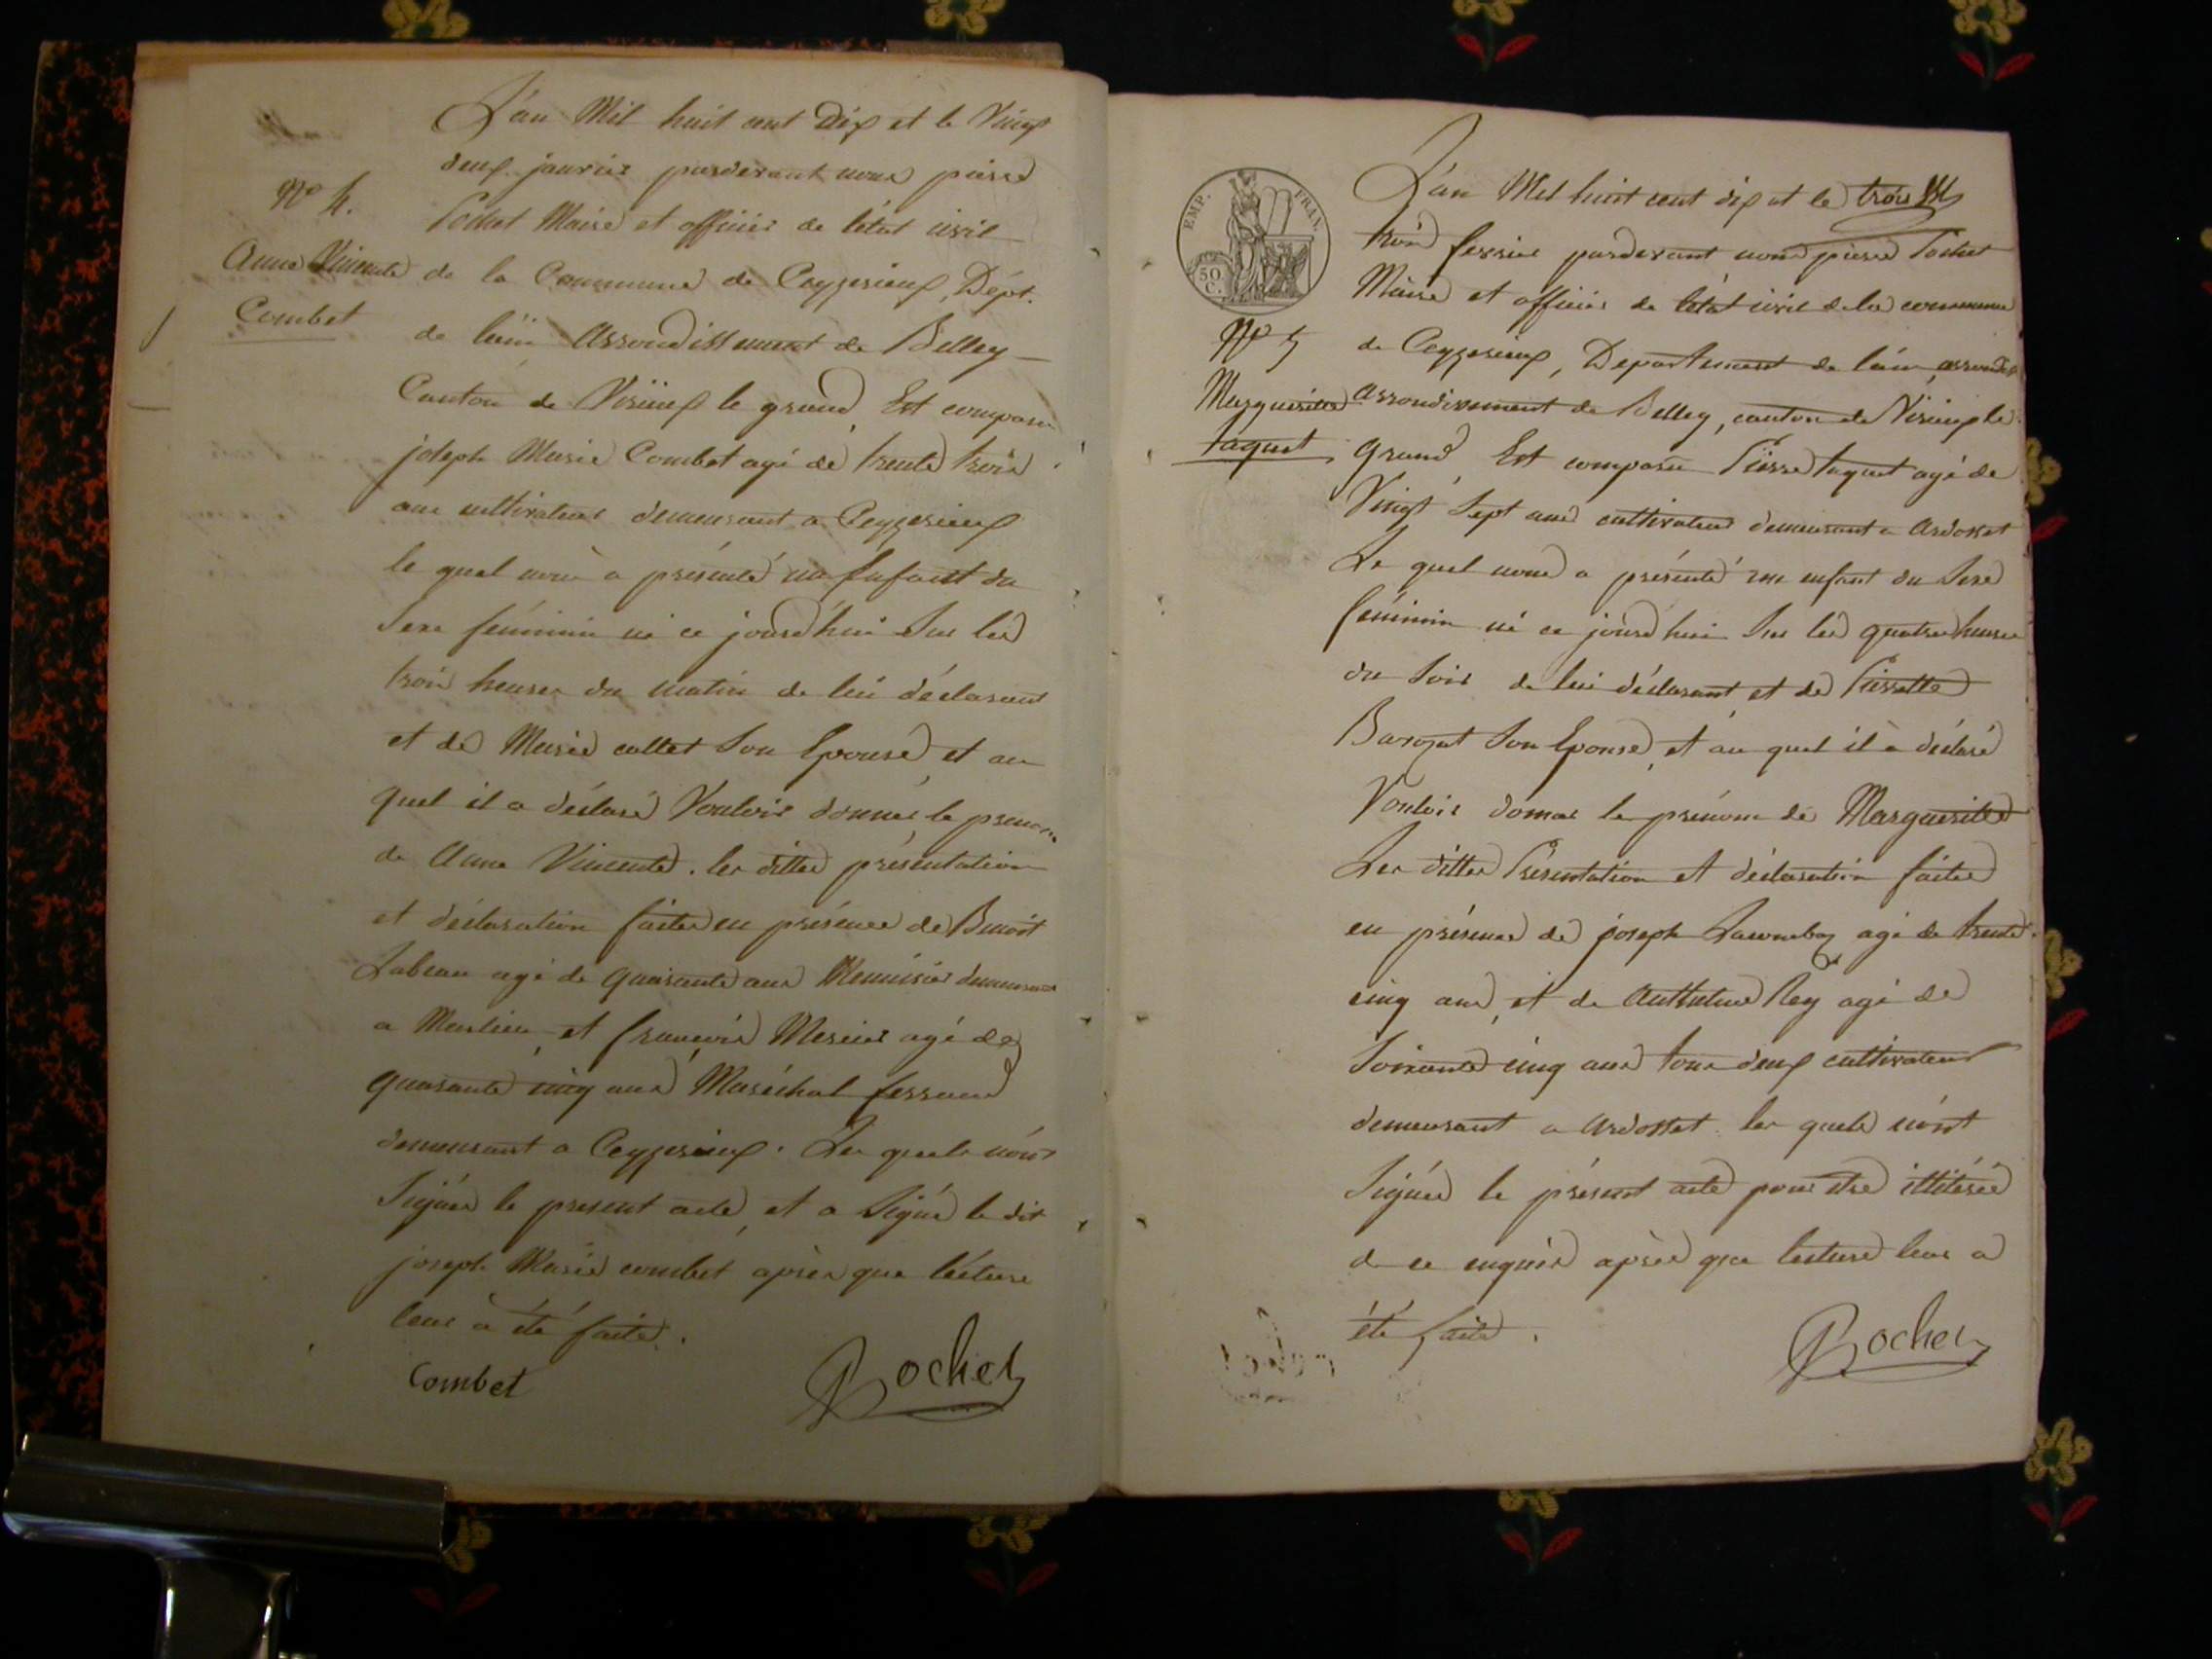 L'an Mil huit cent Dix et le Vingt
deux janvier pardevant nous pierre
Nº 4.
Pochet Maire et officier de l'état civil
Anne Vincente
de la Commune de Ceyzerieux, Dépt.
Combet
de l'ain Arrondissement de Belley
Canton de Virieux le grand, Est comparu
joseph Marie Combet agé de trente trois
ans cultivateur demeurant a Ceyzerieux
le quel nous à présenté un Enfant du
Sexe féminin né ce jourd'hui Sur les
trois heures du matin de lui déclarant
et de Marie collet Son Epouse, et au
quel il a déclaré Vouloir donner le prenom
de Anne Vincente. les dittes présentation
et déclaration faites en présence de Benoit
agé de quarante ans Menuisier demeurant
a et françois Mercier agé de
quarante cinq ans Maréchal ferrand
demeurant a Ceyzerieux. Les quels n'ont
Signés le present acte, et a Signé le dit
joseph Marie combet après que lécture
leur à été faite.
Combet
Pochet
EMP. FRAN.
50 C.
L'an Mil huit cent dix et le trois
trois fevrier pardevant nous pierre Pochet
Maire et officier de l'état civil de la commune
Nº 5
de Ceyzerieux, Departement de l'ain,
Marguerite
arrondissement de Belley, canton de Virieux le
taquet
grand, Est comparu Pierre taquet agé de
Vingt Sept ans cultivateur demeurant a Ardosset
Le quel nous a présenté un enfant du Sexe
féminin né ce jourd'hui Sur les quatre heures
du Soir de lui déclarant, et de Pierrette
Son Epouse, et au quel il à déclaré
Vouloir donner le prénom de Marguerite
Les dittes Présentation et déclaration faites
en présence de joseph agé de trente
cinq ans, et de Anthelme Rey agé de
Soixante cinq ans tous deux cultivateur
demeurant a Ardosset les quels n'ont
Signés le présent acte pour être illitérés
de ce enquis après que lecture leur a
été faite.
Pochet